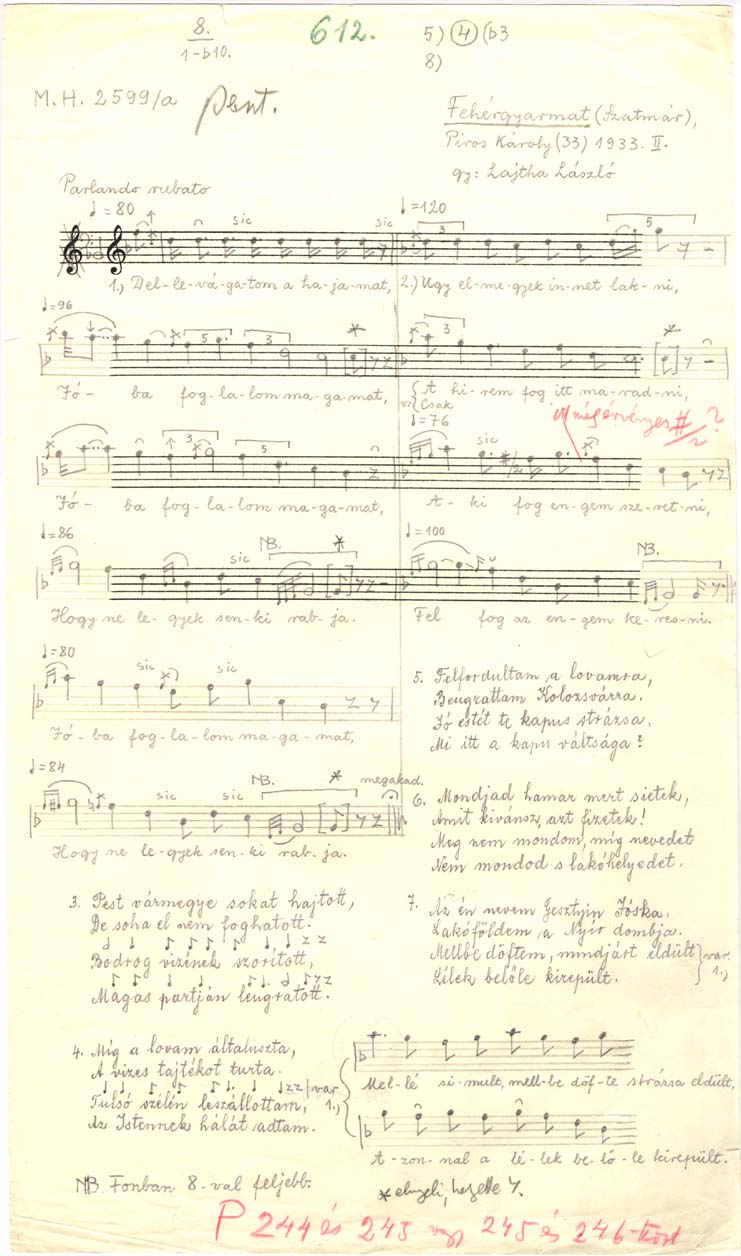 8.
1-b10.
612.
5) 4 (b3
8)
M. H. 2599/a
pent.
Fehérgyarmat (Szatmár),
Piros Károly (33) 1933. II.
gy: Lajtha László
Parlando rubato
♩=80 sic sic ♩=120 3 5
1.) Del-le-vá-ga-tom a ha-ja-mat, 2.) Ugy el-me-gyek in-net lak-ni,
♩=96 5 3 * 3 *
Jó- ba fog-la-lom ma-ga-mat, A hi-rem fog itt ma-rad-ni,
v: Csak
♩=76
érvényes # ?
3 5 sic
Jó- ba fog-la-lom ma-ga-mat, A-ki fog en-gem sze-ret-ni,
♩=86 sic NB. * ♩=100 NB.
Hogy ne le-gyek sen-ki rab-ja. Fel fog az en-gem ke-res-ni.
♩=80 sic sic
Jó-ba fog-la-lom ma-ga-mat,
♩=84 sic sic NB. * megakad.
Hogy ne le-gyek sen-ki rab-ja.
3. Pest vármegye sokat hajtott,
De soha el nem foghatott.
Bodrog vizének szorított,
Magas partján leugratott.
4. Míg a lovam általúszta,
A vizes tajtékot turta.
Tulsó szélén leszállottam,
Az Istennek hálát adtam.
var. 1.)
5. Felfordultam a lovamra,
Beugrattam Kolozsvárra.
Jó estét te kapus strázsa,
Mi itt a kapu váltsága?
6. Mondjad hamar mert sietek,
Amit kivánsz, azt fizetek!
Meg nem mondom, míg nevedet
Nem mondod s lakóhelyedet.
7. Az én nevem Gesztyin Jóska.
Lakóföldem a Nyír dombja.
Mellbe döftem, mindjárt eldült
Lélek belőle kirepült.
var. 1.)
Mel-lé si-mult, mell-be döf-te strázsa eldült,
A-zon-nal a lé-lek be-lő-le kirepült.
NB. Fonban 8-val feljebb.
* elnyeli, helyette 7.
P 244 és 245 vagy 245 és 246 közt